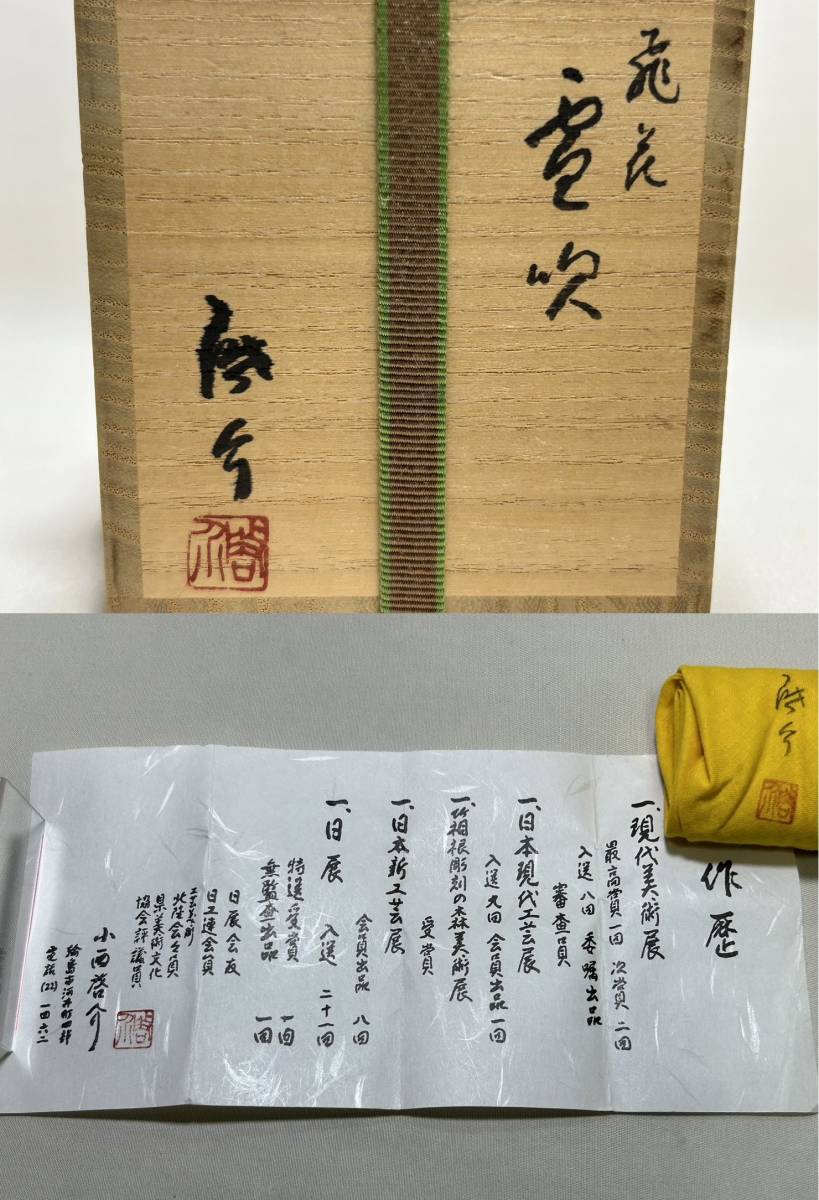 飛花
雪吹
啓介
啓介
作歴
一、現代美術展
最高賞 一回 次賞 二回
入選 八回 委嘱出品
審査員
一、日本現代工芸展
入選 九回 会員出品 一回
一、箱根彫刻の森美術展
受賞
一、日本新工芸展
会員出品 八回
一、日展 入選 二十一回
特選受賞 一回
無監査出品 一回
日展会友
日工連会員
北陸会会員
県美術文化
協会評議員
小西啓介
輪島市河井町四部
電話(22)一四六二